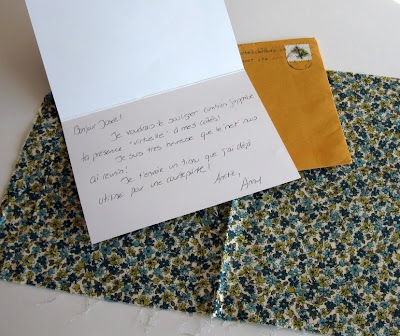 Bonjour Josée!
Je voudrais te souligner combien j'apprécie
ta présence "virtuelle" à mes côtés!
Je suis très heureuse que le net nous
ai réunis!
Je t'envoie un tissu que j'ai déjà
utilisé pour une courtepointe!
Amitié,